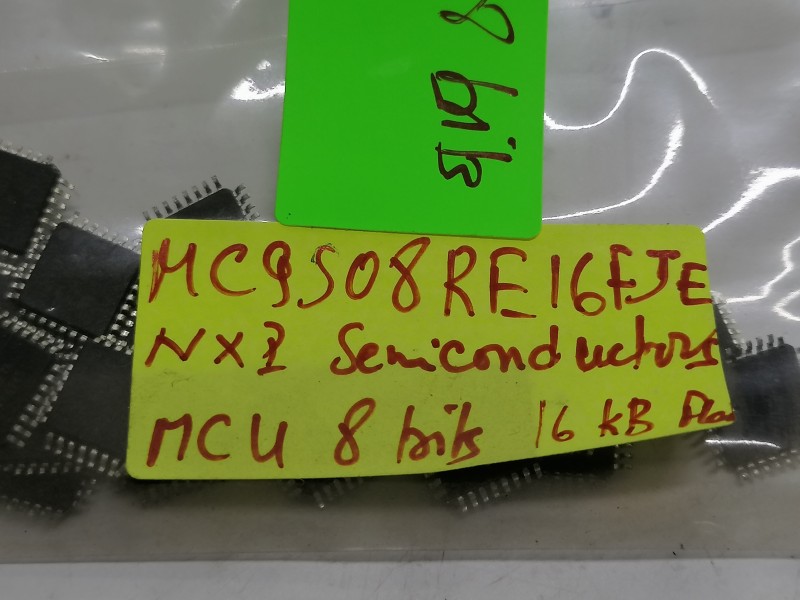 MC9S08RE16FJE
NXP Semiconductors
MCU 8 bits 16 kB Fla